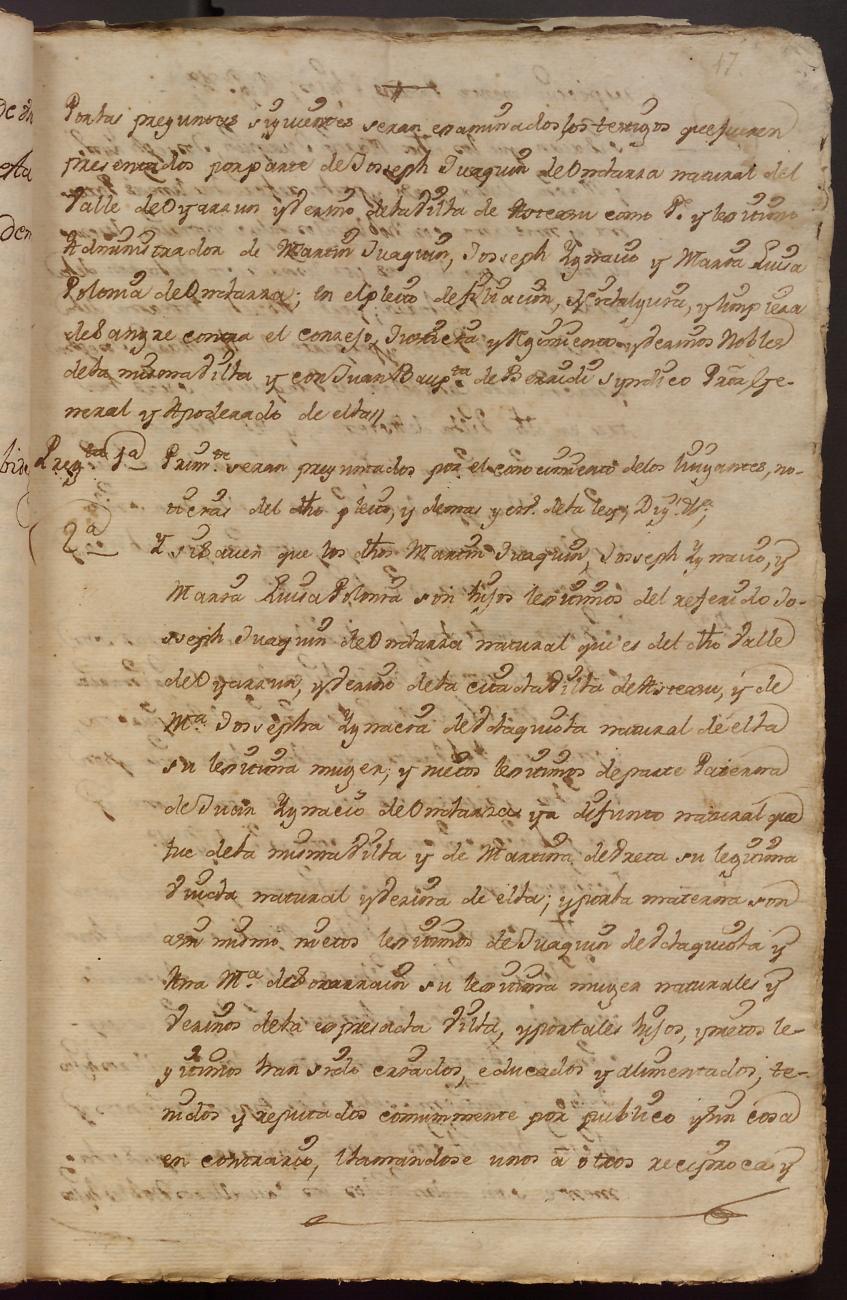 17
Por las preguntas siguientes seran examinados los testigos que fueren
presentados por parte de Josseph Juaquin de Ondarra natural del
Valle de Oyarzun y Vezino de la Villa de Asteasu como P.e y lexitimo
Administrador de Martin Juaquin, Josseph Ygnacio y Maria Luisa
Polonia de Ondarra; en el pleito de filiacion, Hidalguia, y limpieza
de Sangre contra el Conzejo, Justicia y Regimiento y Vezinos Nobles
de la misma Villa y con Juan Baup.ta de Beraidi Syndico Pror Ge-
neral y Apoderado de ella//
Preg.ta 1a Prim.te seran preguntados por el conocimiento de los litigantes, no-
ticias del dho pleito, y demas gen.s de la ley, Dig.n V.a
2a Y si saven que los dhos Martin Juaquin, Josseph Ygnacio, y
Maria Luisa Polonia son hijos lexitimos del referido Jo-
sseph Juaquin de Ondarra natural que es del dho Valle
de Oyarzun, y Vezino de la citada Villa de Asteasu, y de
M.a Josepha Ygnacia de Otaquiola natural de ella
su lexitima muger; y nietos lexitimos de parte Paterna
de Juan Ygnacio de Ondarra ya difunto natural que
fue de la misma Villa y de Martina de Ureta su legitima
Viuda natural y Vezina de ella; y por la materna son
asi mismo nietos lexitimos de Juaquin de Otaquiola y
Ana M.a de Sorarrain su lexitima muger naturales y
Vezinos de la expresada Villa, y por tales hijos, y nietos le-
gitimos han sido criados, educados y alimentados, te-
nidos y reputados comunmente por publico y sin cosa
en contrario, llamandose unos á otros reciproca y